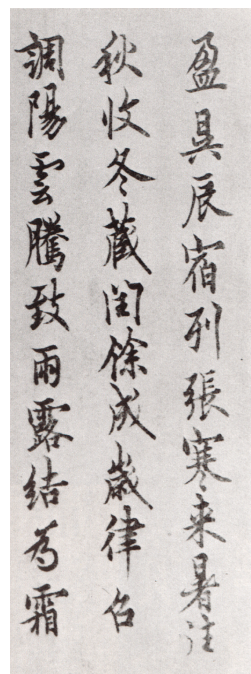 盈昃辰宿列張寒来暑往
秋收冬蔵閏餘成歳律召
調陽雲騰致雨露結為霜